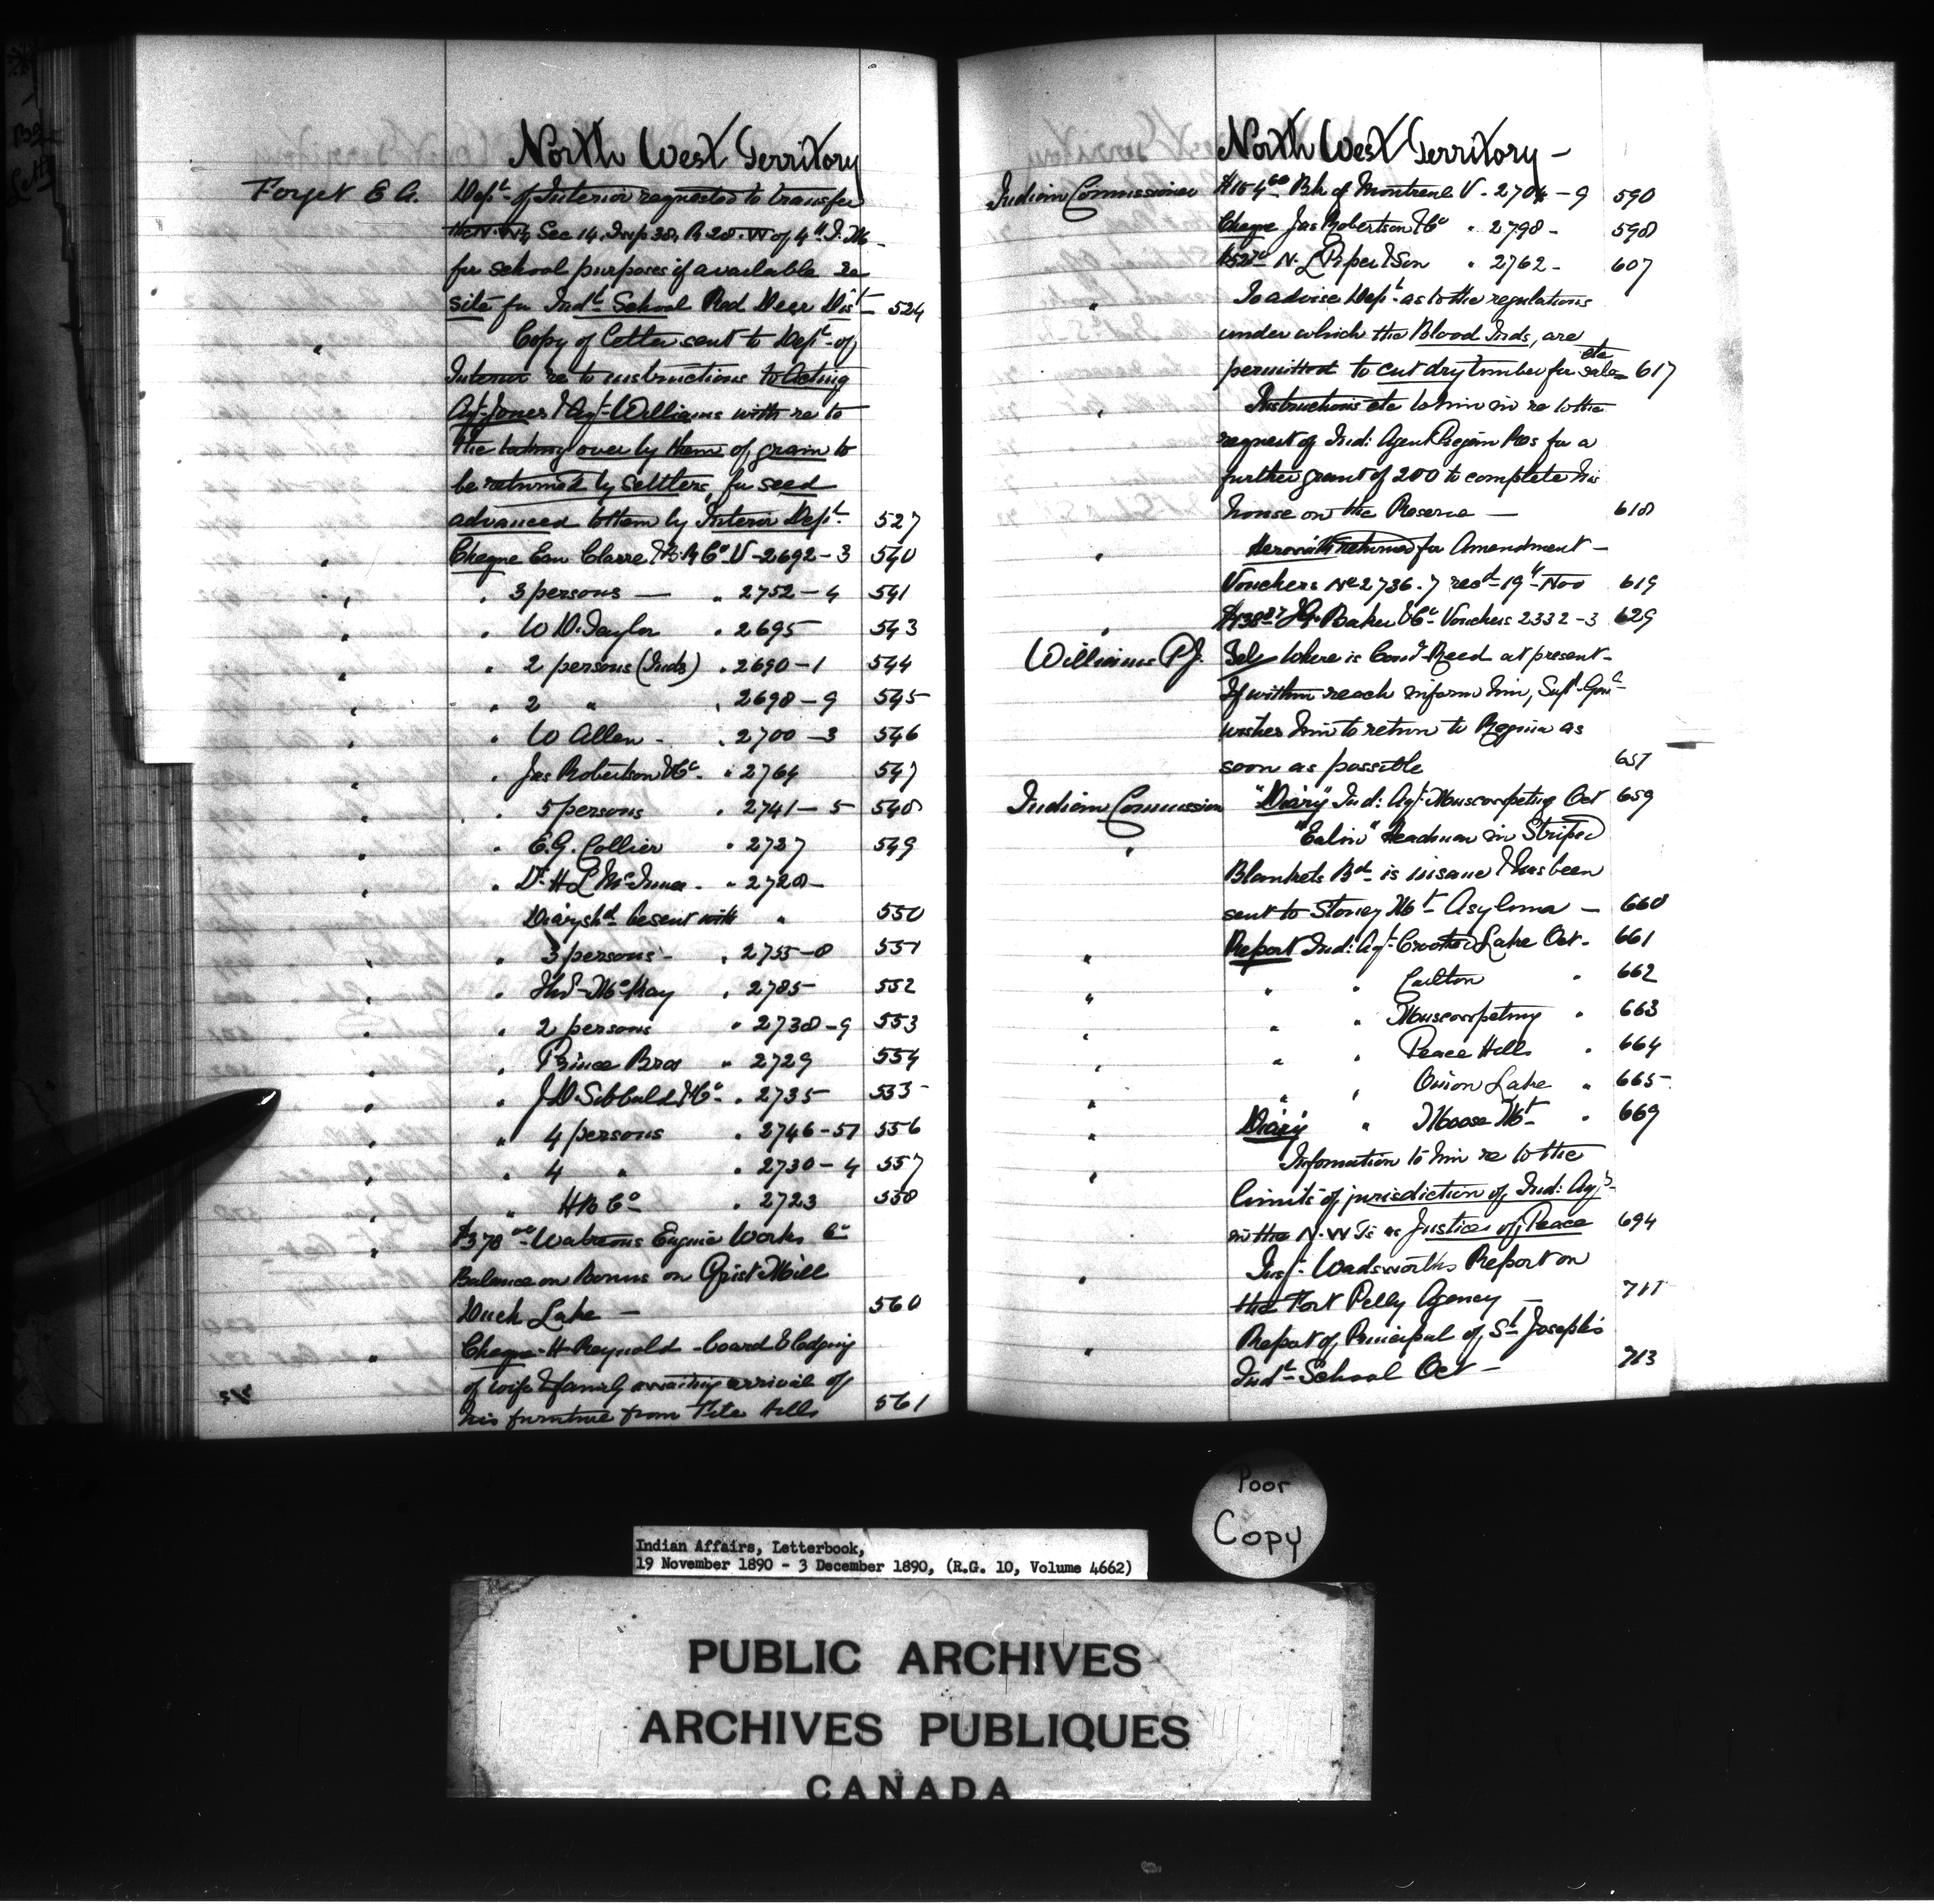 North West Territory
Forget E A. Dept of Interior requested to transfer
the N.W¼ Sec 14. Twp 38, R 28. W of 4th I. M
for school purposes if available re
site for Indl School Red Deer Dist 524
" Copy of letter sent to Dept of
Interior re to instructions to Acting
Agt Jones & Agt Williams with re to
the taking over by them of grain to
be returned by settlers, for seed
advanced to them by Interior Dept. 527
" Cheque Eau Claire & B. R Co V - 2692 - 3 540
" " 3 persons — " 2752 - 4 541
" " W D. Taylor " 2695 543
" " 2 persons (Inds) " 2690 - 1 544
" " 2 " " 2698 - 9 545
" " W Allen - " 2700 - 3 546
" " Jas Robertson & Co. " 2764 547
" " 5 persons " 2741 - 5 548
" " E.G. Collier " 2727 549
" " Dr. H L McInnes - " 2728 -
Diary shd be sent with " 550
" " 3 persons - " 2755 - 8 551
" " Thos McKay " 2785 - 552
" " 2 persons " 2738 - 9 553
" " Prince Bros " 2729 554
" " J D. Sibbald & Co " 2735 555
" " 4 persons " 2746 - 51 556
" " 4 " " 2730 - 4 557
" " H B Co " 2723 558
" $378 00 Waterous Engine Works Co
Balance on Bonus on Grist Mill
Duck Lake — 560
" Cheque - H Reynold - board & lodging
of wife & family awaiting arrival of
his furniture from File Hills 561
North West Territory -
Indian Commissioner Bk of Montreal V - 2704 - 9 590
Cheque Jas Robertson & Co " 2798 - 598
N. L Piper & Son " 2762 - 607
" To advise Dept. as to the regulations
under which the Blood Inds, are
etc
permitted to cut dry timber for sale 617
" Instructions etc to him in re to the
request of Ind: Agent Piegan Res for a
further grant of 200 to complete his
house on the Reserve — 618
" Herewith returned for Amendment -
Vouchers No 2736. 7 recd 19th Nov 619
" Baker & Co Vouchers 2332 - 3 629
Williams P J. Tel Where is Comr Reed at present -
If within reach inform him, Supt. Genl
wishes him to return to Regina as
soon as possible 657
Indian Commission "Diary" Ind: Agt. Muscowpetung Oct 659
" Headman in Striped
Blankets Bd is insane & has been
sent to Stoney Mt Asylum — 660
" Report Ind: Agt. Crooked Lake Oct. 661
" " " Carlton " 662
" " " Muscowpetung " 663
" " " Peace Hills " 664
" " " Onion Lake " 665
" Diary " Moose Mt " 669
" Information to him re to the
limits of jurisdiction of Ind: Agts
in the N.W Ts as Justices of Peace 694
" Insp. Wadsworths Report on
the Fort Pelly Agency — 711
" Report of Principal of St Joseph's
Indl School Oct — 713
Poor
Copy
Indian Affairs, Letterbook,
19 November 1890 - 3 December 1890, (R.G. 10, Volume 4662)
PUBLIC ARCHIVES
ARCHIVES PUBLIQUES
CANADA